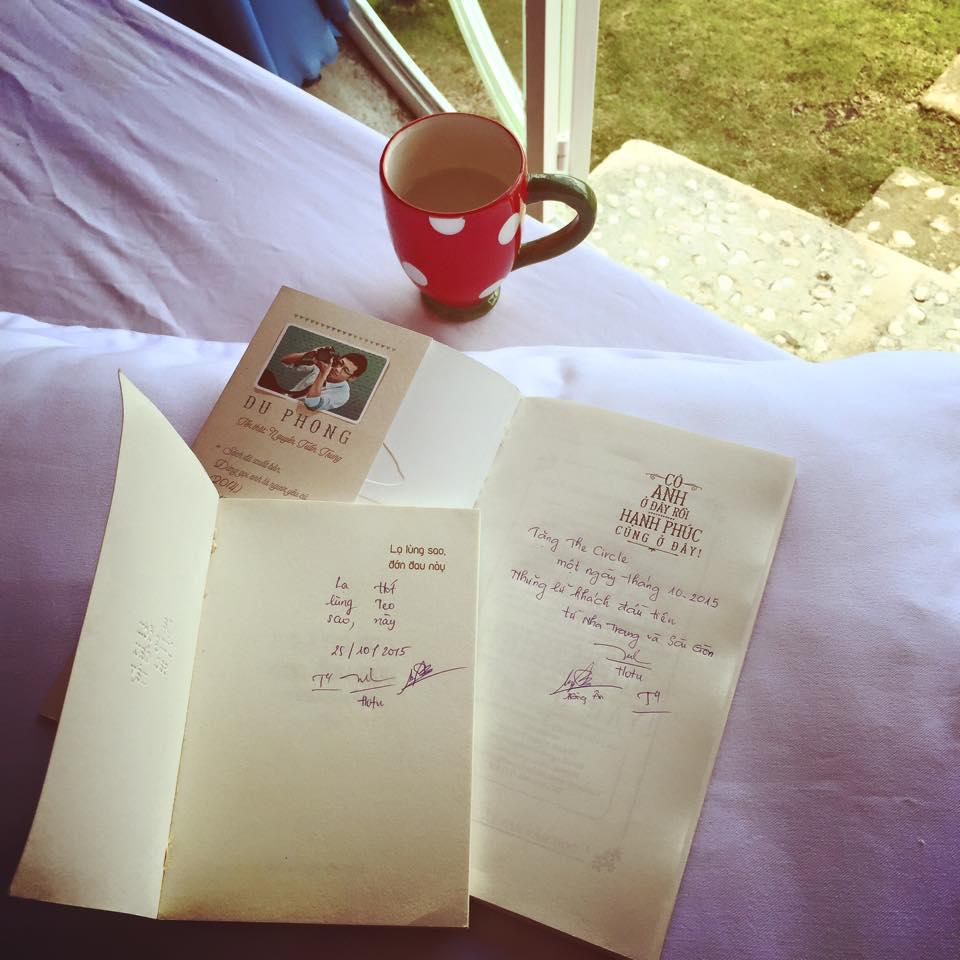 DU PHONG
Tên thật: Nguyễn Tuấn Trung
* Sách đã xuất bản:
Đừng gọi anh là người yêu cũ
(2014)
CÓ
ANH
Ở ĐÂY RỒI
HẠNH PHÚC
CŨNG Ở ĐÂY!
Tặng The Circle
một ngày tháng 10.2015
Những lữ khách đầu tiên
từ Nha Trang và Sài Gòn
Hotu
Hồng Ân
TY
Lạ lùng sao,
đớn đau này
Lạ
lùng
sao,
Hót
Teo
này
25/10/2015
TY
Hotu